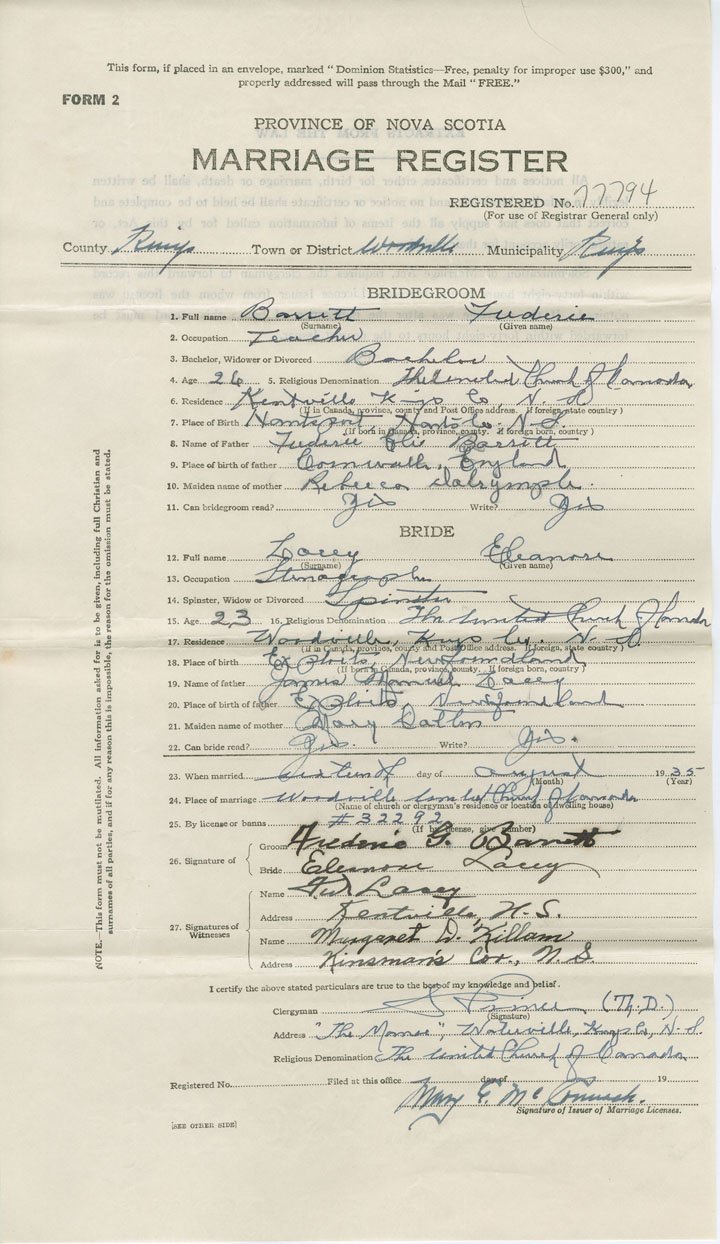 This form, if placed in an envelope, marked "Dominion Statistics—Free, penalty for improper use $300," and
properly addressed will pass through the Mail "FREE."
FORM 2
PROVINCE OF NOVA SCOTIA
MARRIAGE REGISTER
REGISTERED No. 77794
(For use of Registrar General only)
County Kings Town or District Woodville Municipality Kings
BRIDEGROOM
1. Full name Barrett Frederic
(Surname) (Given name)
2. Occupation Teacher
3. Bachelor, Widower or Divorced Bachelor
4. Age 26 5. Religious Denomination The United Church of Canada
6. Residence Kentville Kings Co, N.S.
(If in Canada, province, county and Post Office address. If foreign, state country)
7. Place of Birth Hantsport, Hants Co. N.S.
(If born in Canada, province, county. If foreign born, country)
8. Name of Father Frederic Barrett
9. Place of birth of father Cornwall, England
10. Maiden name of mother Rebecca Dalrymple.
11. Can bridegroom read? Yes Write? Yes
BRIDE
12. Full name Lacey Eleanore
(Surname) (Given name)
13. Occupation Stenographer
14. Spinster, Widow or Divorced Spinster
15. Age 23 16. Religious Denomination The United Church of Canada
17. Residence Woodville, Kings Co., N.S.
(If in Canada, province, county and Post Office address. If foreign, state country)
18. Place of birth Exploits, Newfoundland
(If born in Canada, province, county. If foreign born, country)
19. Name of father James Manuel Lacey
20. Place of birth of father Exploits, Newfoundland
21. Maiden name of mother Mary
22. Can bride read? Yes. Write? Yes.
23. When married sixteenth day of August 1935
(Month) (Year)
24. Place of marriage Woodville United Church of Canada
(Name of church or clergyman's residence or location of dwelling house)
25. By license or banns #32292
(If by license, give number)
26. Signature of
Groom Frederic G. Barrett
Bride Eleanore Lacey
27. Signatures of Witnesses
Name Lacey
Address Kentville, N.S.
Name Margaret D. Killam
Address Kinsman's Cor., N.S.
I certify the above stated particulars are true to the best of my knowledge and belief.
Clergyman Prince (Th.D.)
(Signature)
Address "The Manse", Waterville, Kings Co, N.S.
Religious Denomination The United Church of Canada
Registered No. Filed at this office day of 19
Mary E.
Signature of Issuer of Marriage Licenses.
[SEE OTHER SIDE]
NOTE.—This form must not be mutilated. All information asked for is to be given, including full Christian and
surnames of all parties, and if for any reason this is impossible, the reason for the omission must be stated.